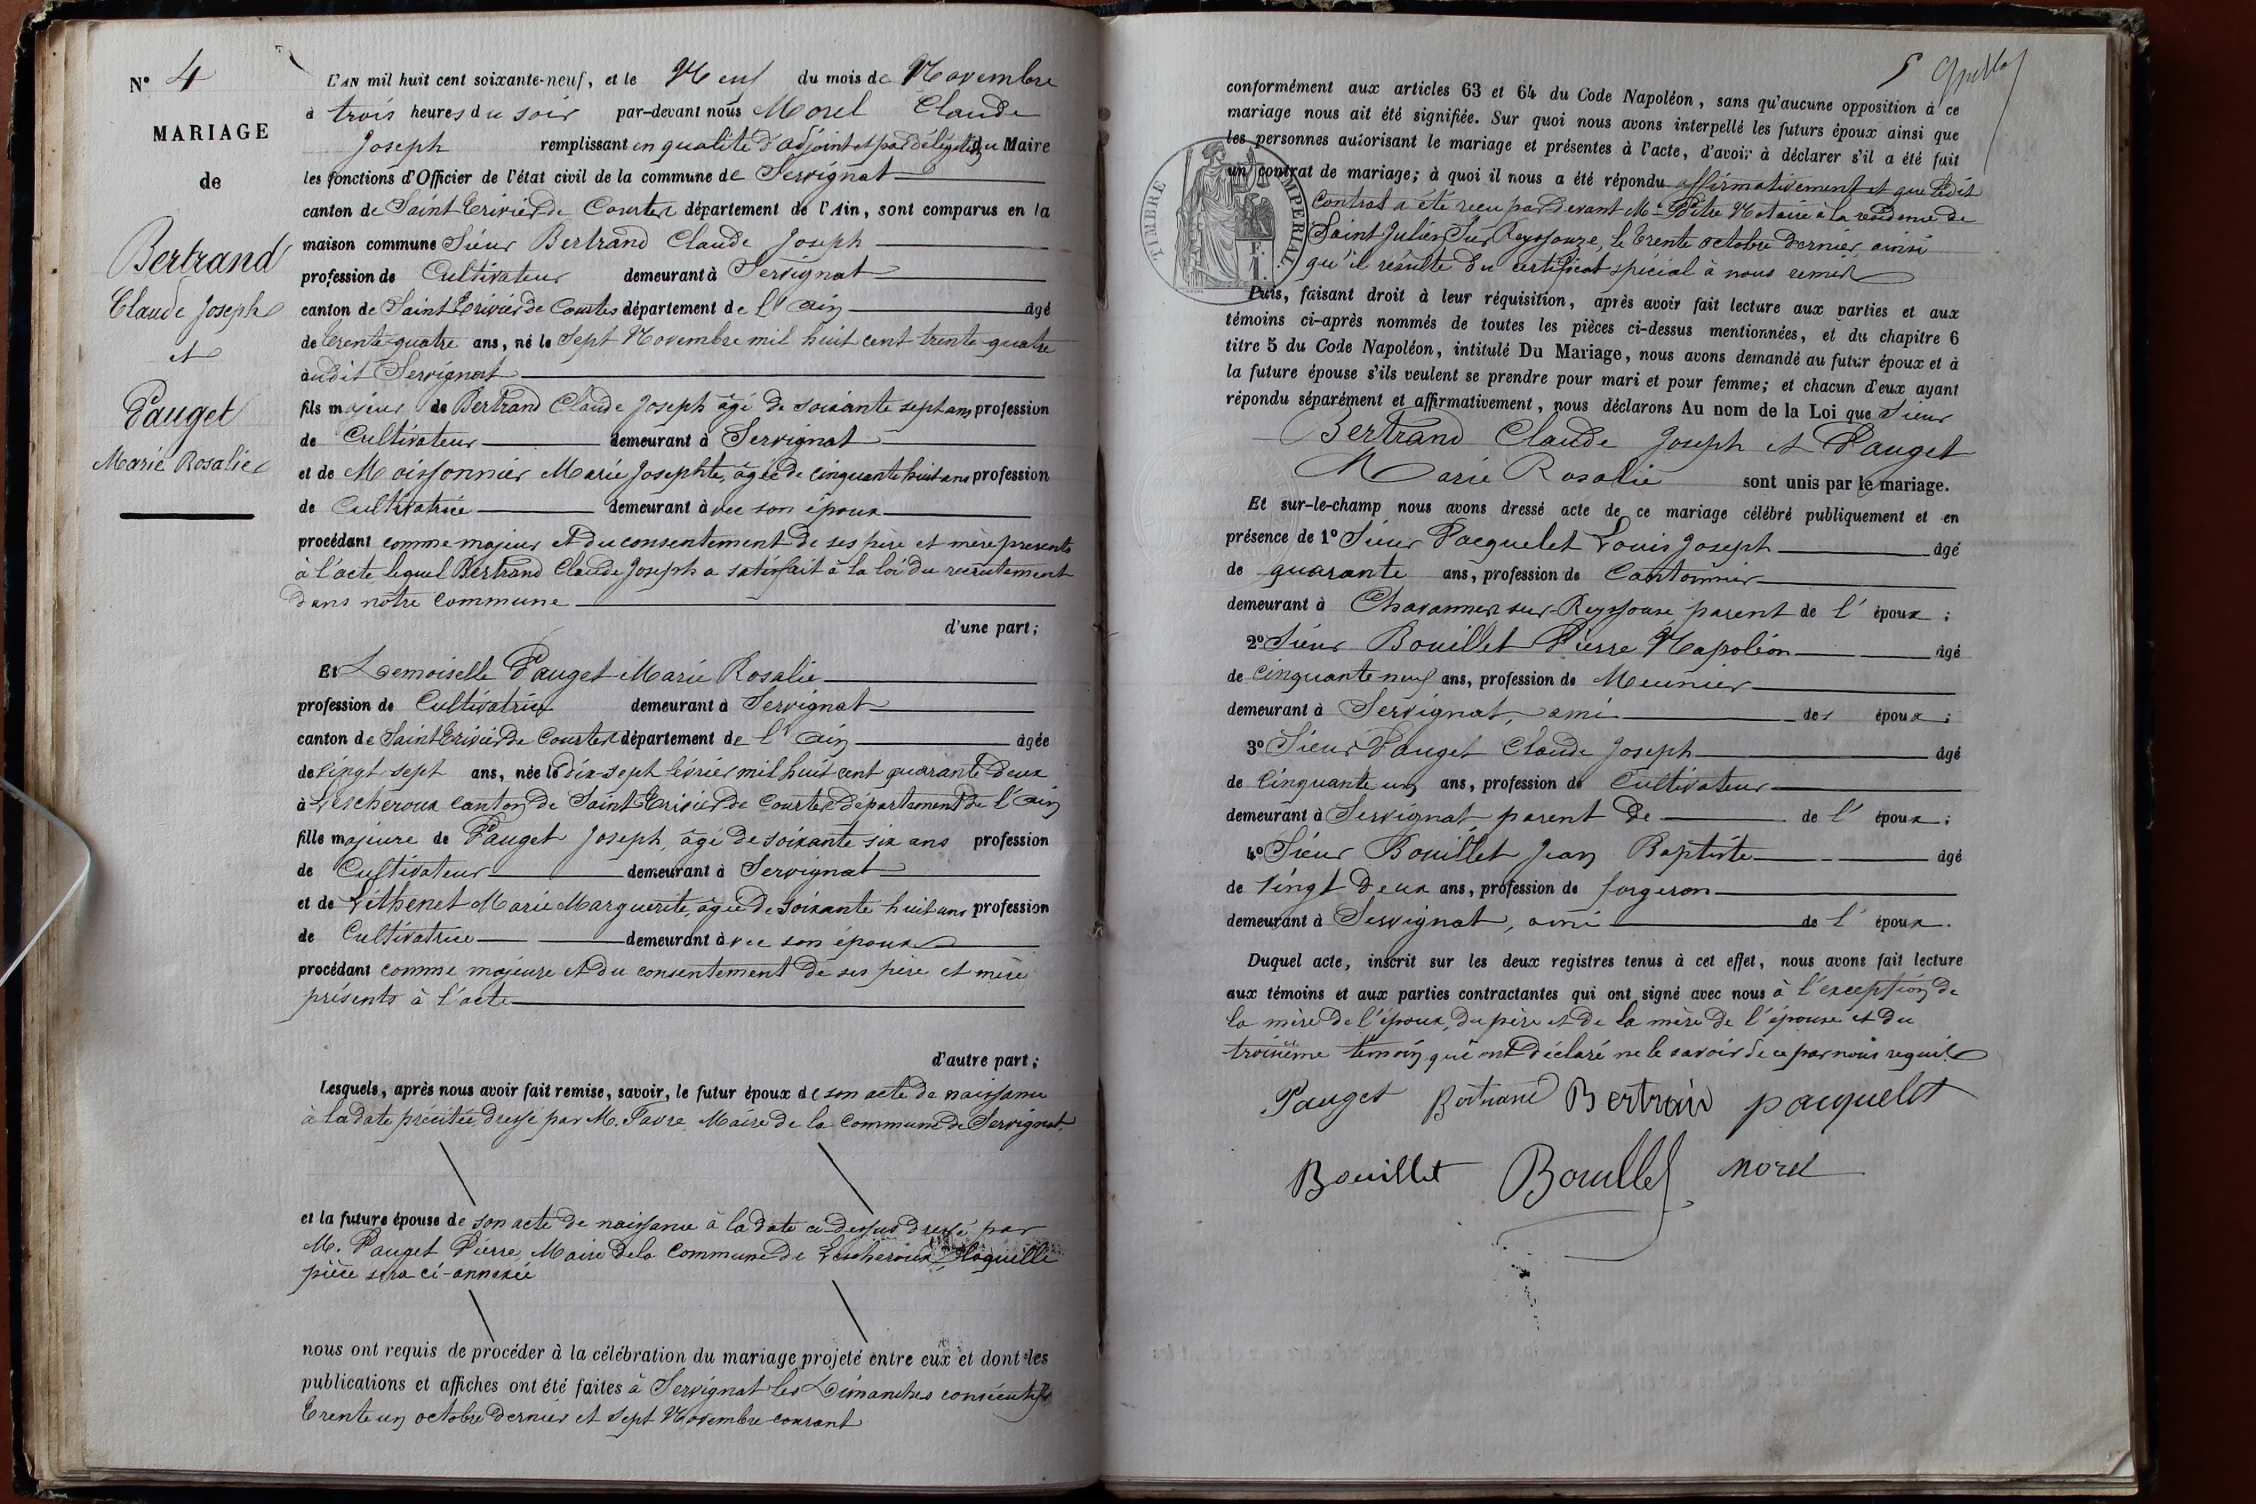 N° 4
MARIAGE
de
Bertrand
Claude Joseph
et
Pauget
Marie Rosalie
L'AN mil huit cent soixante-neuf, et le Neuf du mois de Novembre
à trois heures du soir par-devant nous Morel Claude
Joseph remplissant en qualité d'adjoint et par délégation du Maire
les fonctions d'Officier de l'état civil de la commune de Servignat
canton de Saint Trivier de Courtes département de l'Ain, sont comparus en la
maison commune Sieur Bertrand Claude Joseph
profession de Cultivateur demeurant à Servignat
canton de Saint Trivier de Courtes département de l'Ain âgé
de trente-quatre ans, né le Sept Novembre mil huit cent trente-quatre
audit Servignat
fils majeur de Bertrand Claude Joseph âgé de soixante sept ans profession
de Cultivateur demeurant à Servignat
et de Moissonnier Marie Josephte, âgée de cinquante huit ans profession
de Cultivatrice demeurant avec son époux
procédant comme majeur et du consentement de ses père et mère présents
à l'acte lequel Bertrand Claude Joseph a satisfait à la loi du recrutement
dans notre commune
d'une part;
Et Demoiselle Pauget Marie Rosalie
profession de Cultivatrice demeurant à Servignat
canton de Saint Trivier de Courtes département de l'Ain âgée
de vingt-sept ans, née le dix-sept février mil huit cent quarante deux
à Lescheroux canton de Saint Trivier de Courtes département de l'Ain
fille majeure de Pauget Joseph, âgé de soixante six ans profession
de Cultivateur demeurant à Servignat
et de Véthenet Marie Marguerite, âgée de soixante huit ans profession
de Cultivatrice demeurant avec son époux
procédant comme majeure et du consentement de ses père et mère
présents à l'acte
d'autre part;
Lesquels, après nous avoir fait remise, savoir, le futur époux de son acte de naissance
à la date précitée dressé par M. Favre Maire de la commune de Servignat
et la future épouse de son acte de naissance à la date ci dessus dressé par
M. Pauget Pierre Maire de la commune de Lescheroux, laquelle
pièce sera ci-annexée
nous ont requis de procéder à la célébration du mariage projeté entre eux et dont les
publications et affiches ont été faites à Servignat les Dimanches consécutifs
trente un octobre dernier et sept Novembre courant
5
TIMBRE IMPERIAL
conformément aux articles 63 et 64 du Code Napoléon, sans qu'aucune opposition à ce
mariage nous ait été signifiée. Sur quoi nous avons interpellé les futurs époux ainsi que
les personnes autorisant le mariage et présentes à l'acte, d'avoir à déclarer s'il a été fait
un contrat de mariage; à quoi il nous a été répondu affirmativement et que ledit
contrat a été reçu par devant Me Pitre Notaire à la résidence de
Saint Julien Sur Reyssouze, le trente octobre dernier, ainsi
qu'il résulte du certificat spécial à nous remis
Puis, faisant droit à leur réquisition, après avoir fait lecture aux parties et aux
témoins ci-après nommés de toutes les pièces ci-dessus mentionnées, et du chapitre 6
titre 5 du Code Napoléon, intitulé Du Mariage, nous avons demandé au futur époux et à
la future épouse s'ils veulent se prendre pour mari et pour femme; et chacun d'eux ayant
répondu séparément et affirmativement, nous déclarons Au nom de la Loi que Sieur
Bertrand Claude Joseph et Pauget
Marie Rosalie sont unis par le mariage.
Et sur-le-champ nous avons dressé acte de ce mariage célébré publiquement et en
présence de 1° Sieur Pacquelet Louis Joseph âgé
de quarante ans, profession de Cantonnier
demeurant à Chavannes sur Reyssouze, parent de l'époux;
2° Sieur Bouillet Pierre Napoléon âgé
de cinquante neuf ans, profession de Meunier
demeurant à Servignat, ami des époux;
3° Sieur Pauget Claude Joseph âgé
de cinquante un ans, profession de Cultivateur
demeurant à Servignat parent de de l'époux;
4° Sieur Bouillet Jean Baptiste âgé
de vingt deux ans, profession de forgeron
demeurant à Servignat, ami de l'époux.
Duquel acte, inscrit sur les deux registres tenus à cet effet, nous avons fait lecture
aux témoins et aux parties contractantes qui ont signé avec nous à l'exception de
la mère de l'époux, du père et de la mère de l'épouse et du
troisième témoin qui ont déclaré ne le savoir de ce par nous requis
Pauget Bertrand Bertrand pacquelet
Bouillet Bouillet morel